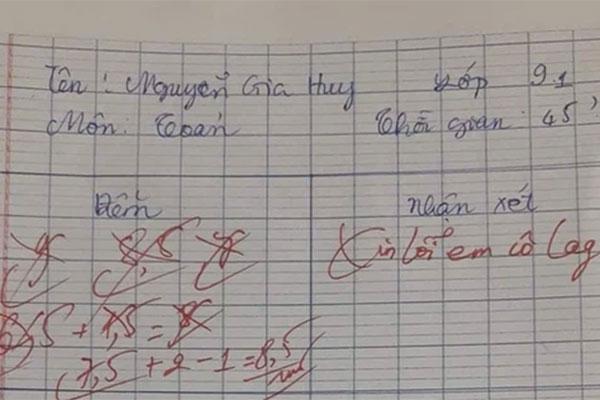 Tên : Nguyễn Gia Huy Lớp 9.1
Môn: Toán Thời gian: 45'
Điểm nhận xét
8,5 Xin lỗi em cô lag
+ 7,5 = 8
7,5 + 2 - 1 = 8,5